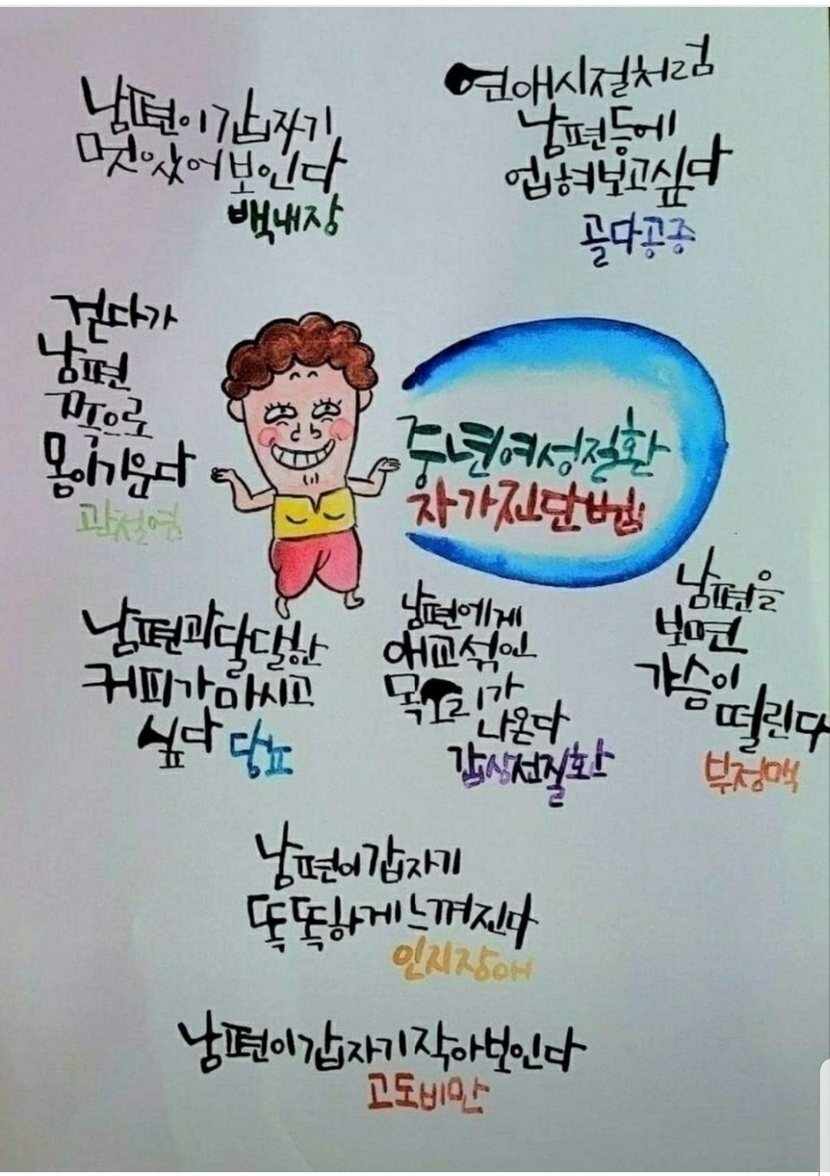 남편이 갑자기
멋있어 보인다
백내장
연애시절처럼
남편등에
업혀보고싶다
골다공증
걷다가
남편
쪽으로
몸이기운다
관절염
중년여성질환
자가진단법
남편과달달한
커피가 마시고
싶다 당뇨
남편에게
애교섞인
목소리가
나온다
갑상선질환
남편을
보면
가슴이
떨린다
부정맥
남편이갑자기
똑똑하게느껴진다
인지장애
남편이갑자기작아보인다
고도비만